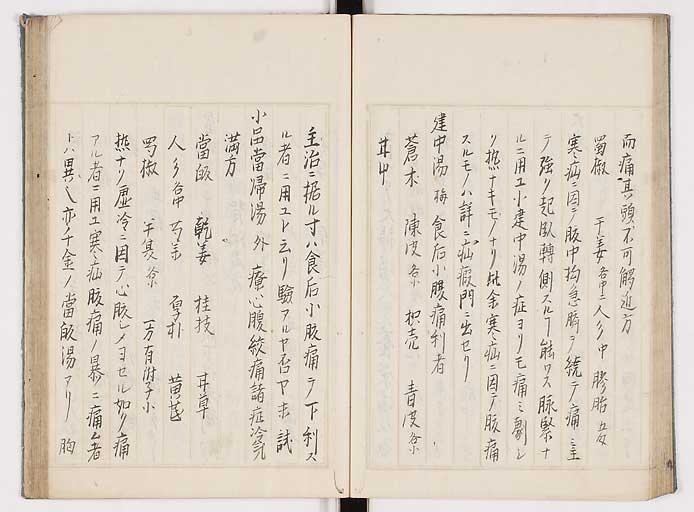 而痛其頭不可觸近方
蜀椒 干姜各中 人参中 膠飴
寒疝ニ因テ腹中拘急臍ヲ繞テ痛ミ主
テ強ク起臥轉側スルヿ能ワス脉緊ナ
ルニ用ユ小建中湯ノ症ヨリモ痛ミ劇シ
ク熱ナキモノナリ此余寒疝ニ因テ腹痛
スルモノハ詳ニ疝瘕門ニ出セリ
建中湯 梅 食后小腹痛利者
蒼朮 陳皮各 枳壳 青皮各小
甘中
主治ニ据ル寸ハ食后小腹痛テ下利ス
ル者ニ用ユト云リ驗アルヤ否ヤ未試
小品當帰湯 外 療心腹絞痛諸症冷氣
満方
當皈 乾姜 桂枝 甘草
人参各中 芍薬 厚朴 黄芪
蜀椒 半夏各小 一方有附子小
熱ナク虚冷ニ因テ心腹ヨセル如ク痛
アル者ニ用ユ寒疝腹痛ノ暴ニ痛ム者
トハ異ヘ亦千金ノ當皈湯アリ 胸